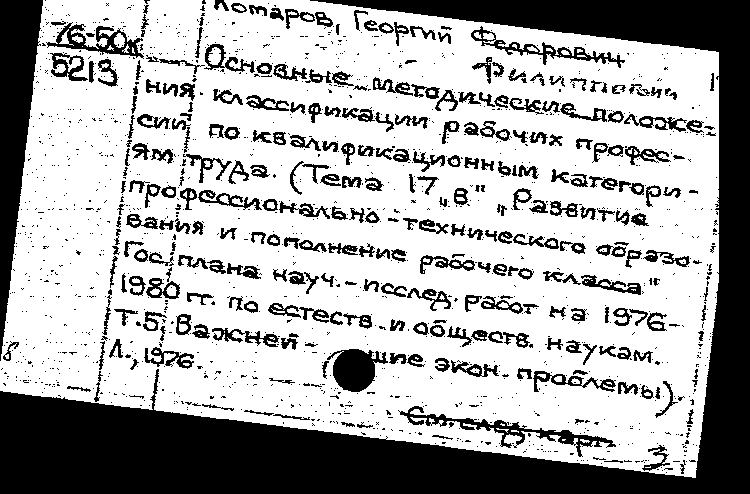 Комаров, Георгий Федорович
76-50к
5213
Филиппович
Основные методические положе-
ния классификации рабочих профес-
сий по квалификационным категори-
ям труда. (Тема 17 „в" „Развитие
профессионально-технического образо-
вания и пополнение рабочего класса"
Гос. плана науч.-исслед. работ на 1976-
1980 гг. по естеств. и обществ. наукам.
Т.5. Важней-
шие экон. проблемы).
Л., 1976.
См. след. карт.
3